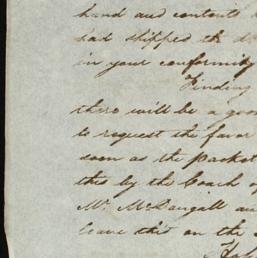 hand and contents
had shipped th
in your conformity
Finding
there will be a
to request the favor
soon as the packet
this by the Coach of
Mr. McDougall an
leave this on the